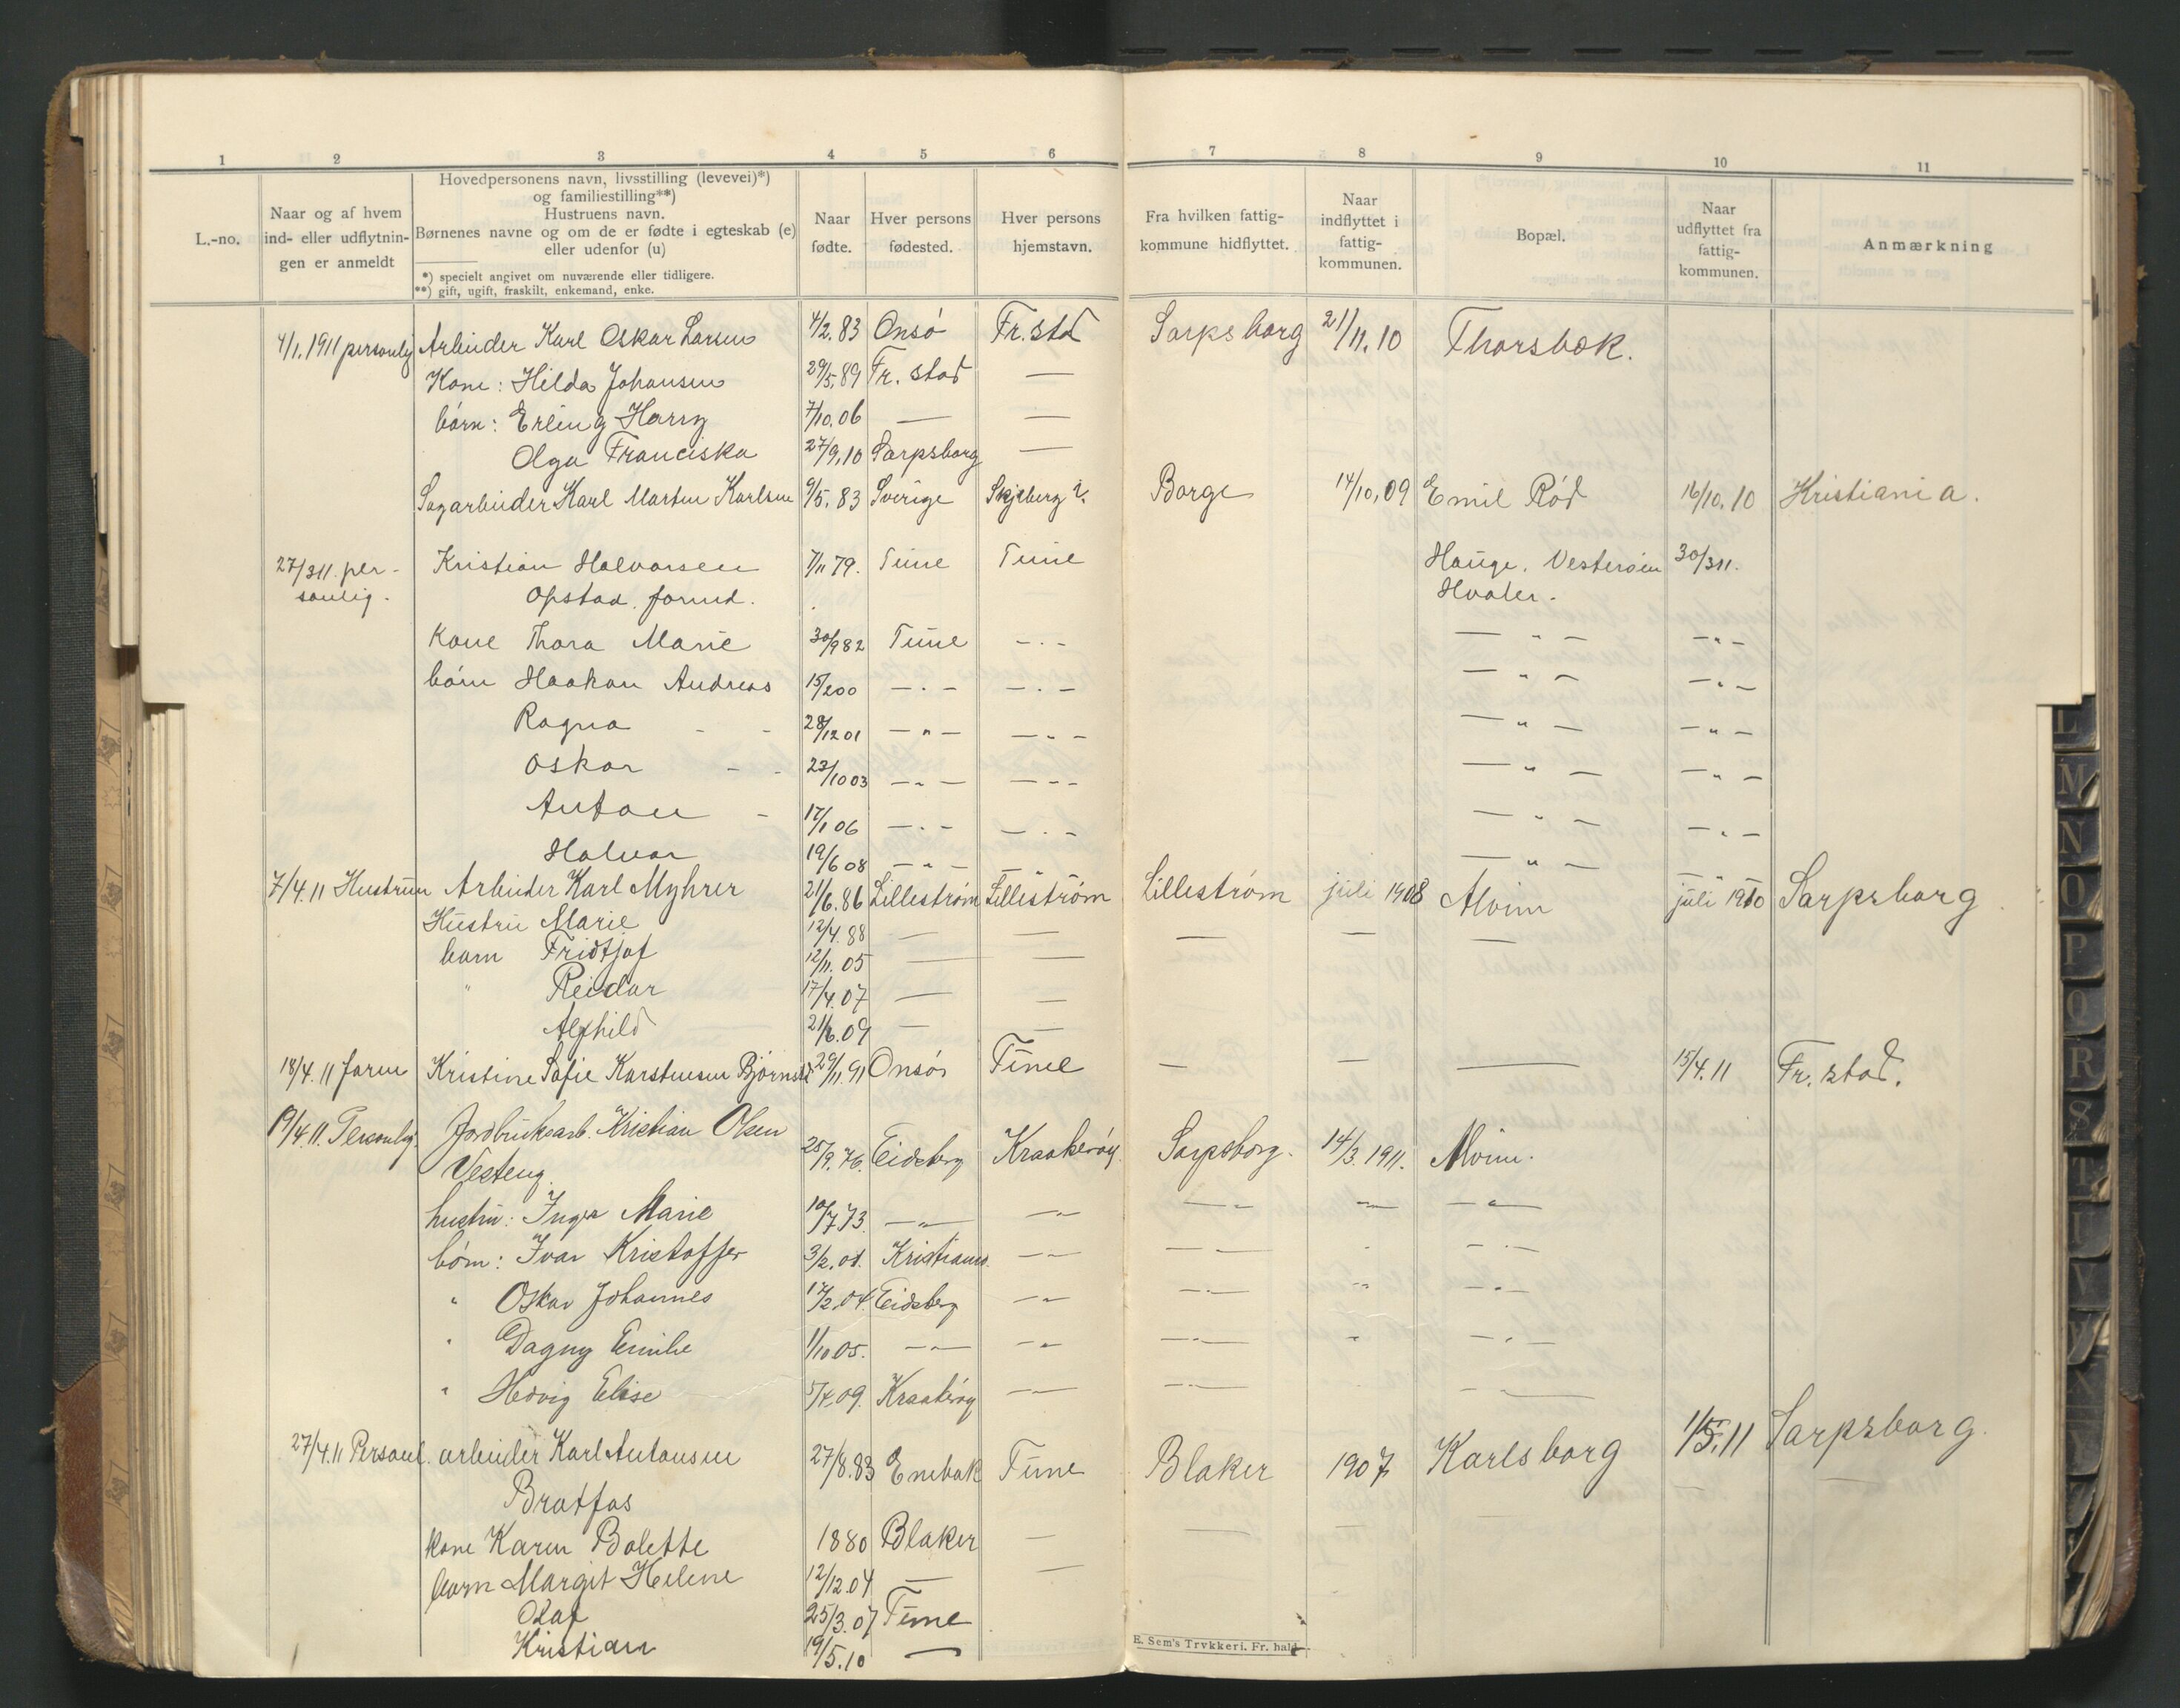 1 2 3 4 5 6 7 8 9 10 11
L.-no.
Naar og af hvem
ind- eller udflytnin-
gen er anmeldt
Hovedpersonens navn, livsstilling (levevei)*)
og familiestilling**)
Hustruens navn.
Børnenes navne og om de er fødte i egteskab (e)
eller udenfor (u)
*) specielt angivet om nuværende eller tidligere.
**) gift, ugift, fraskilt, enkemand, enke.
Naar
fødte.
Hver persons
fødested.
Hver persons
hjemstavn.
Fra hvilken fattig-
kommune hidflyttet.
Naar
indflyttet i
fattig-
kommunen.
Bopæl.
Naar
udflyttet fra
fattig-
kommunen.
Anmærkning
4/1.1911 personlig Arbeider Karl Oskar Larsen 4/2.83 Onsø Fr.stad Sarpsborg 21/11.10 Thorsbæk.
Kone: Hilda Johansen 29/5.89 Fr. stad —
børn: Erling Harry 7/10.06 — —
Olga Franciska 27/9.10 Sarpsborg —
Sagarbeider Karl Marten Karlsen 9/5.83 Sverige Skjeberg ?. Borge 14/10.09 Emil Rød 16/10.10 Kristiania.
27/3 11. per- Kristian Halvorsen 7/11 79. Tune Tune Hauge. Vesterøen 30/3 11.
sonlig. Opstad. formd. Hvaler.
Kone Thora Marie 30/9 82 Tune — . — — " — — " —
børn Haakon Andreas 15/2 00 — . — — . — — " — — " —
Ragna - - 28/12 01 — " — — " — — " — — " —
Oskar - - 23/10 03 — " — — " — — " — — " —
Anton - 17/1 06 — . — — . — — " — — " —
Halvor 19/6 08 — " — — " — — " — — " —
7/4.11 Hustruen Arbeider Karl Myhrer 21/6.86 Lillestrøm Lillestrøm Lillestrøm juli 1908 Alvim juli 1910 Sarpsborg
Hustru Marie 12/4.88 — — — — —
barn Fridtjof 12/11.05 — —
" Reidar 17/4.07 — —
Alfhild 21/6.09 — —
18/4.11 faren Kristine Sofie Karstensen Bjørnstd 29/11.91 Onsø Tune — — — 15/4.11 Fr. stad.
19/4.11. Personlig. Jordbruksarb. Kristian Olsen
Vesteng. 25/9.76. Eidsberg Kraakerøy. Sarpsborg. 14/3.1911. Alvim.
hustru: Inga Marie 10/7 73. — " — — " — — " — — " — — " —
børn: Ivar Kristoffer 3/2.01. Kristiania. — " — — " — " — " —
" Oskar Johannes 17/2.04. Eidsberg — " — — " — " — " —
" Dagny Emilie 1/10 05. — " — — " — — " — " — " —
" Hedvig Elise 5/4.09. Kraakerøy — " — — " — — " —
27/4.11 Personl. arbeider Karl Antonsen 27/8.83 Enebak Tune Blaker 1907 Karlsborg 1/5.11 Sarpsborg.
Bratfos
kone Karen Bolette 1880 Blaker — — —
barn Margit Helene 12/12.04 — —
Olaf 25/3.07 Tune
Kristian 19/5.10 —
E. Sem's Trykkeri. Fr. hald
L
M
N
O
P
Q
R
S
T
V